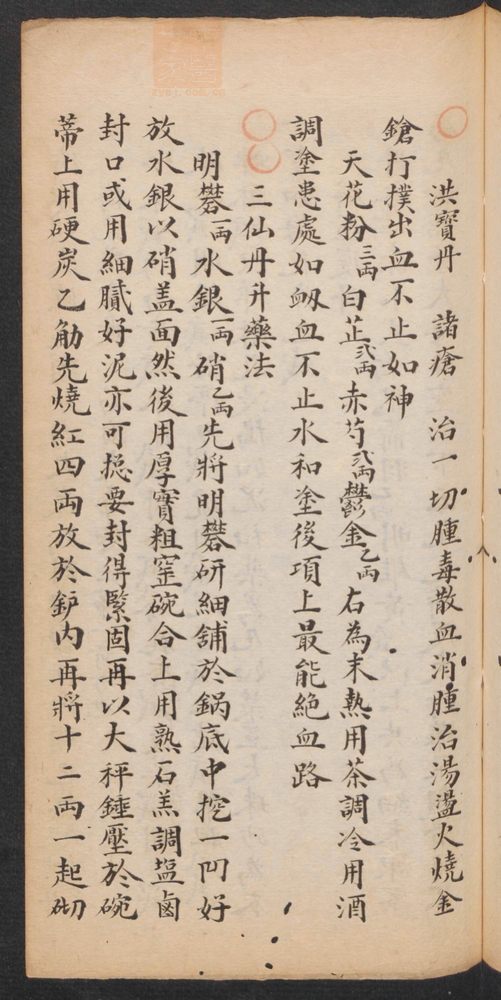 洪寶丹 諸瘡 治一切腫毒散血消腫治湯盪火燒金
鎗打撲出血不止如神
天花粉三兩白芷弍兩赤芍弍兩鬱金乙兩 右為末熱用茶調冷用酒
調塗患處如衂血不止水和塗後項上最能絕血路
三仙丹升藥法
明礬一兩水銀一兩硝乙兩先將明礬研細舖於鍋底中挖一凹好
放水銀以硝盖面然後用厚實粗窰碗合上用熟石羔調塩鹵
封口或用細膩好泥亦可揔要封得緊固再以大秤錘壓於碗
蒂上用硬炭乙觔先燒紅四兩放於鈩內再將十二兩一起砌